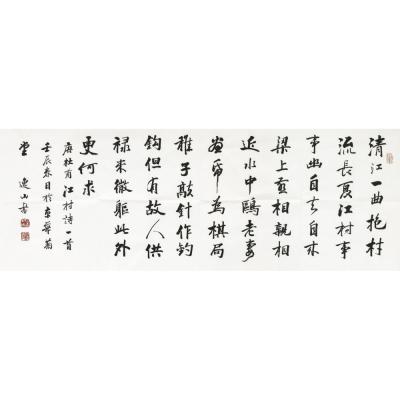 清江一曲抱村
流長夏江村事
事幽自去自来
梁上燕相親相
近水中鷗老妻
畫帋為棋局
稚子敲針作釣
鈎但有故人供
禄米微軀此外
更何求
唐杜甫江村詩一首
壬辰春日於京華菊
堂 逸山書